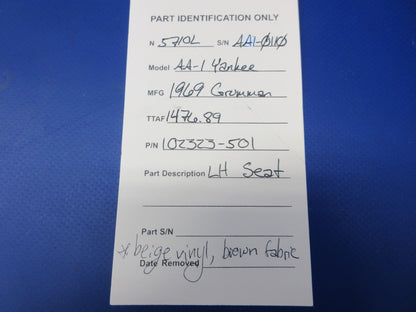 PART IDENTIFICATION ONLY
N 5710L S/N AA1-0110
Model AA-1 Yankee
MFG 1969 Grumman
TTAF 1476.89
P/N 102323-501
Part Description LH Seat
Part S/N
* beige vinyl, brown fabric
Date Removed